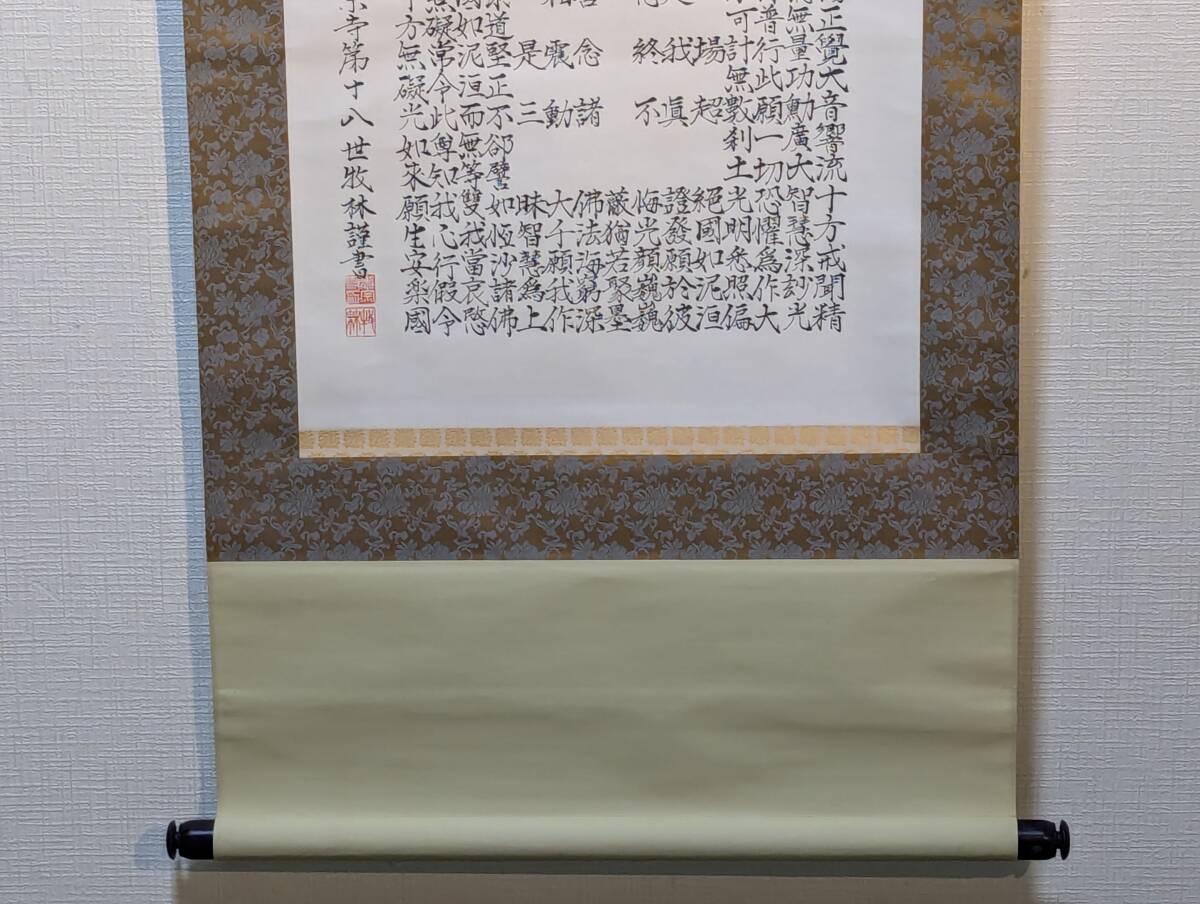 正覺大音響流十方戒聞精
無量功勳廣大智慧深妙光
普行此願一切恐懼為作大
可計無數刹土光明悉照徧
場超絕國如泥洹
我眞證發願於彼
終不悔光顏巍巍
蔽猶若聚墨
念諸佛法海窮深
震動大千願我作
是三昧智慧為上
道堅正不郤譬如恒沙諸佛
如泥洹而無等雙我當哀愍
礙常令此尊知我心行假令
方無礙光如来願生安楽國
寺第十八世牧林謹書